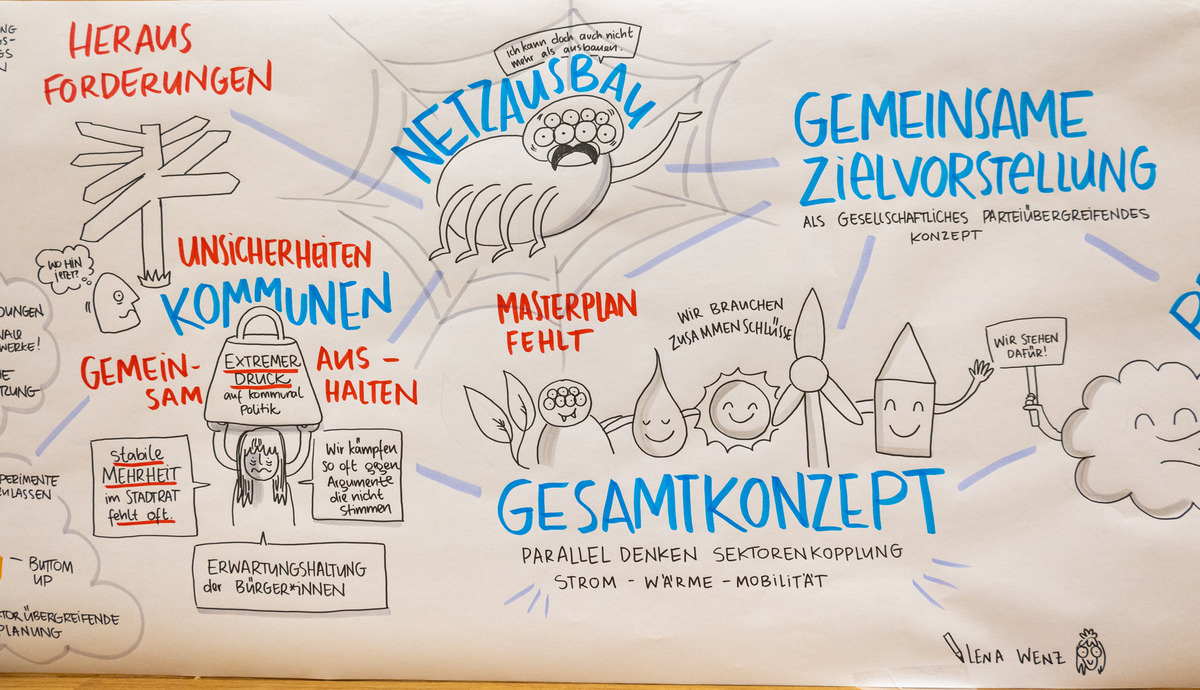 HERAUS
FORDERUNGEN
WO HIN
JETZT?
UNSICHERHEITEN
KOMMUNEN
GEMEIN-
SAM
AUS-
HALTEN
EXTREMER
DRUCK
auf kommunal
Politik
stabile
MEHRHEIT
im STADTRAT
fehlt oft.
Wir kämpfen
so oft gegen
Argumente
die nicht
stimmen
ERWARTUNGSHALTUNG
der BÜRGER*INNEN
BUTTOM
UP
PLANUNG
Ich kann doch auch nicht
mehr als ausbauen.
NETZAUSBAU
GEMEINSAME
ZIELVORSTELLUNG
ALS GESELLSCHAFTLICHES PARTEIÜBERGREIFENDES
KONZEPT
MASTERPLAN
FEHLT
WIR BRAUCHEN
ZUSAMMENSCHLÜSSE
WIR STEHEN
DAFÜR!
GESAMTKONZEPT
PARALLEL DENKEN SEKTORENKOPPLUNG
STROM - WÄRME - MOBILITÄT
LENA WENZ